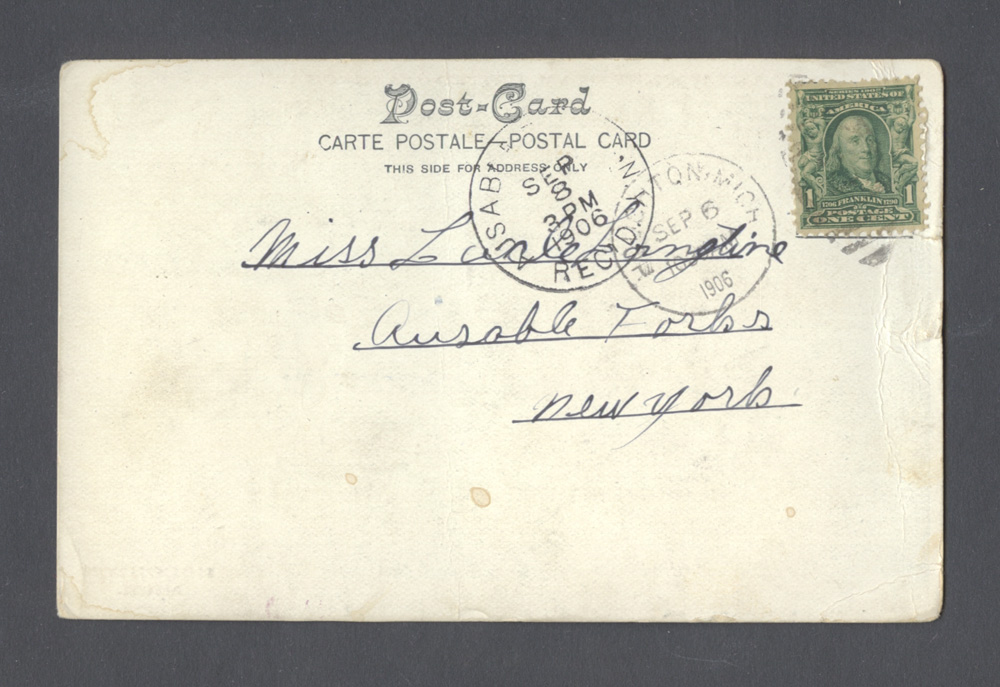 Post-Card
CARTE POSTALE—POSTAL CARD
THIS SIDE FOR ADDRESS ONLY
SERIES 1902
UNITED STATES OF
AMERICA
1 1
1706 FRANKLIN 1790
POSTAGE
ONE CENT
AUSAB N.Y.
SEP
8
3 PM
1906
REC'D
TON, MICH.
SEP 6
1906
Miss L
Ausable Forks
New York